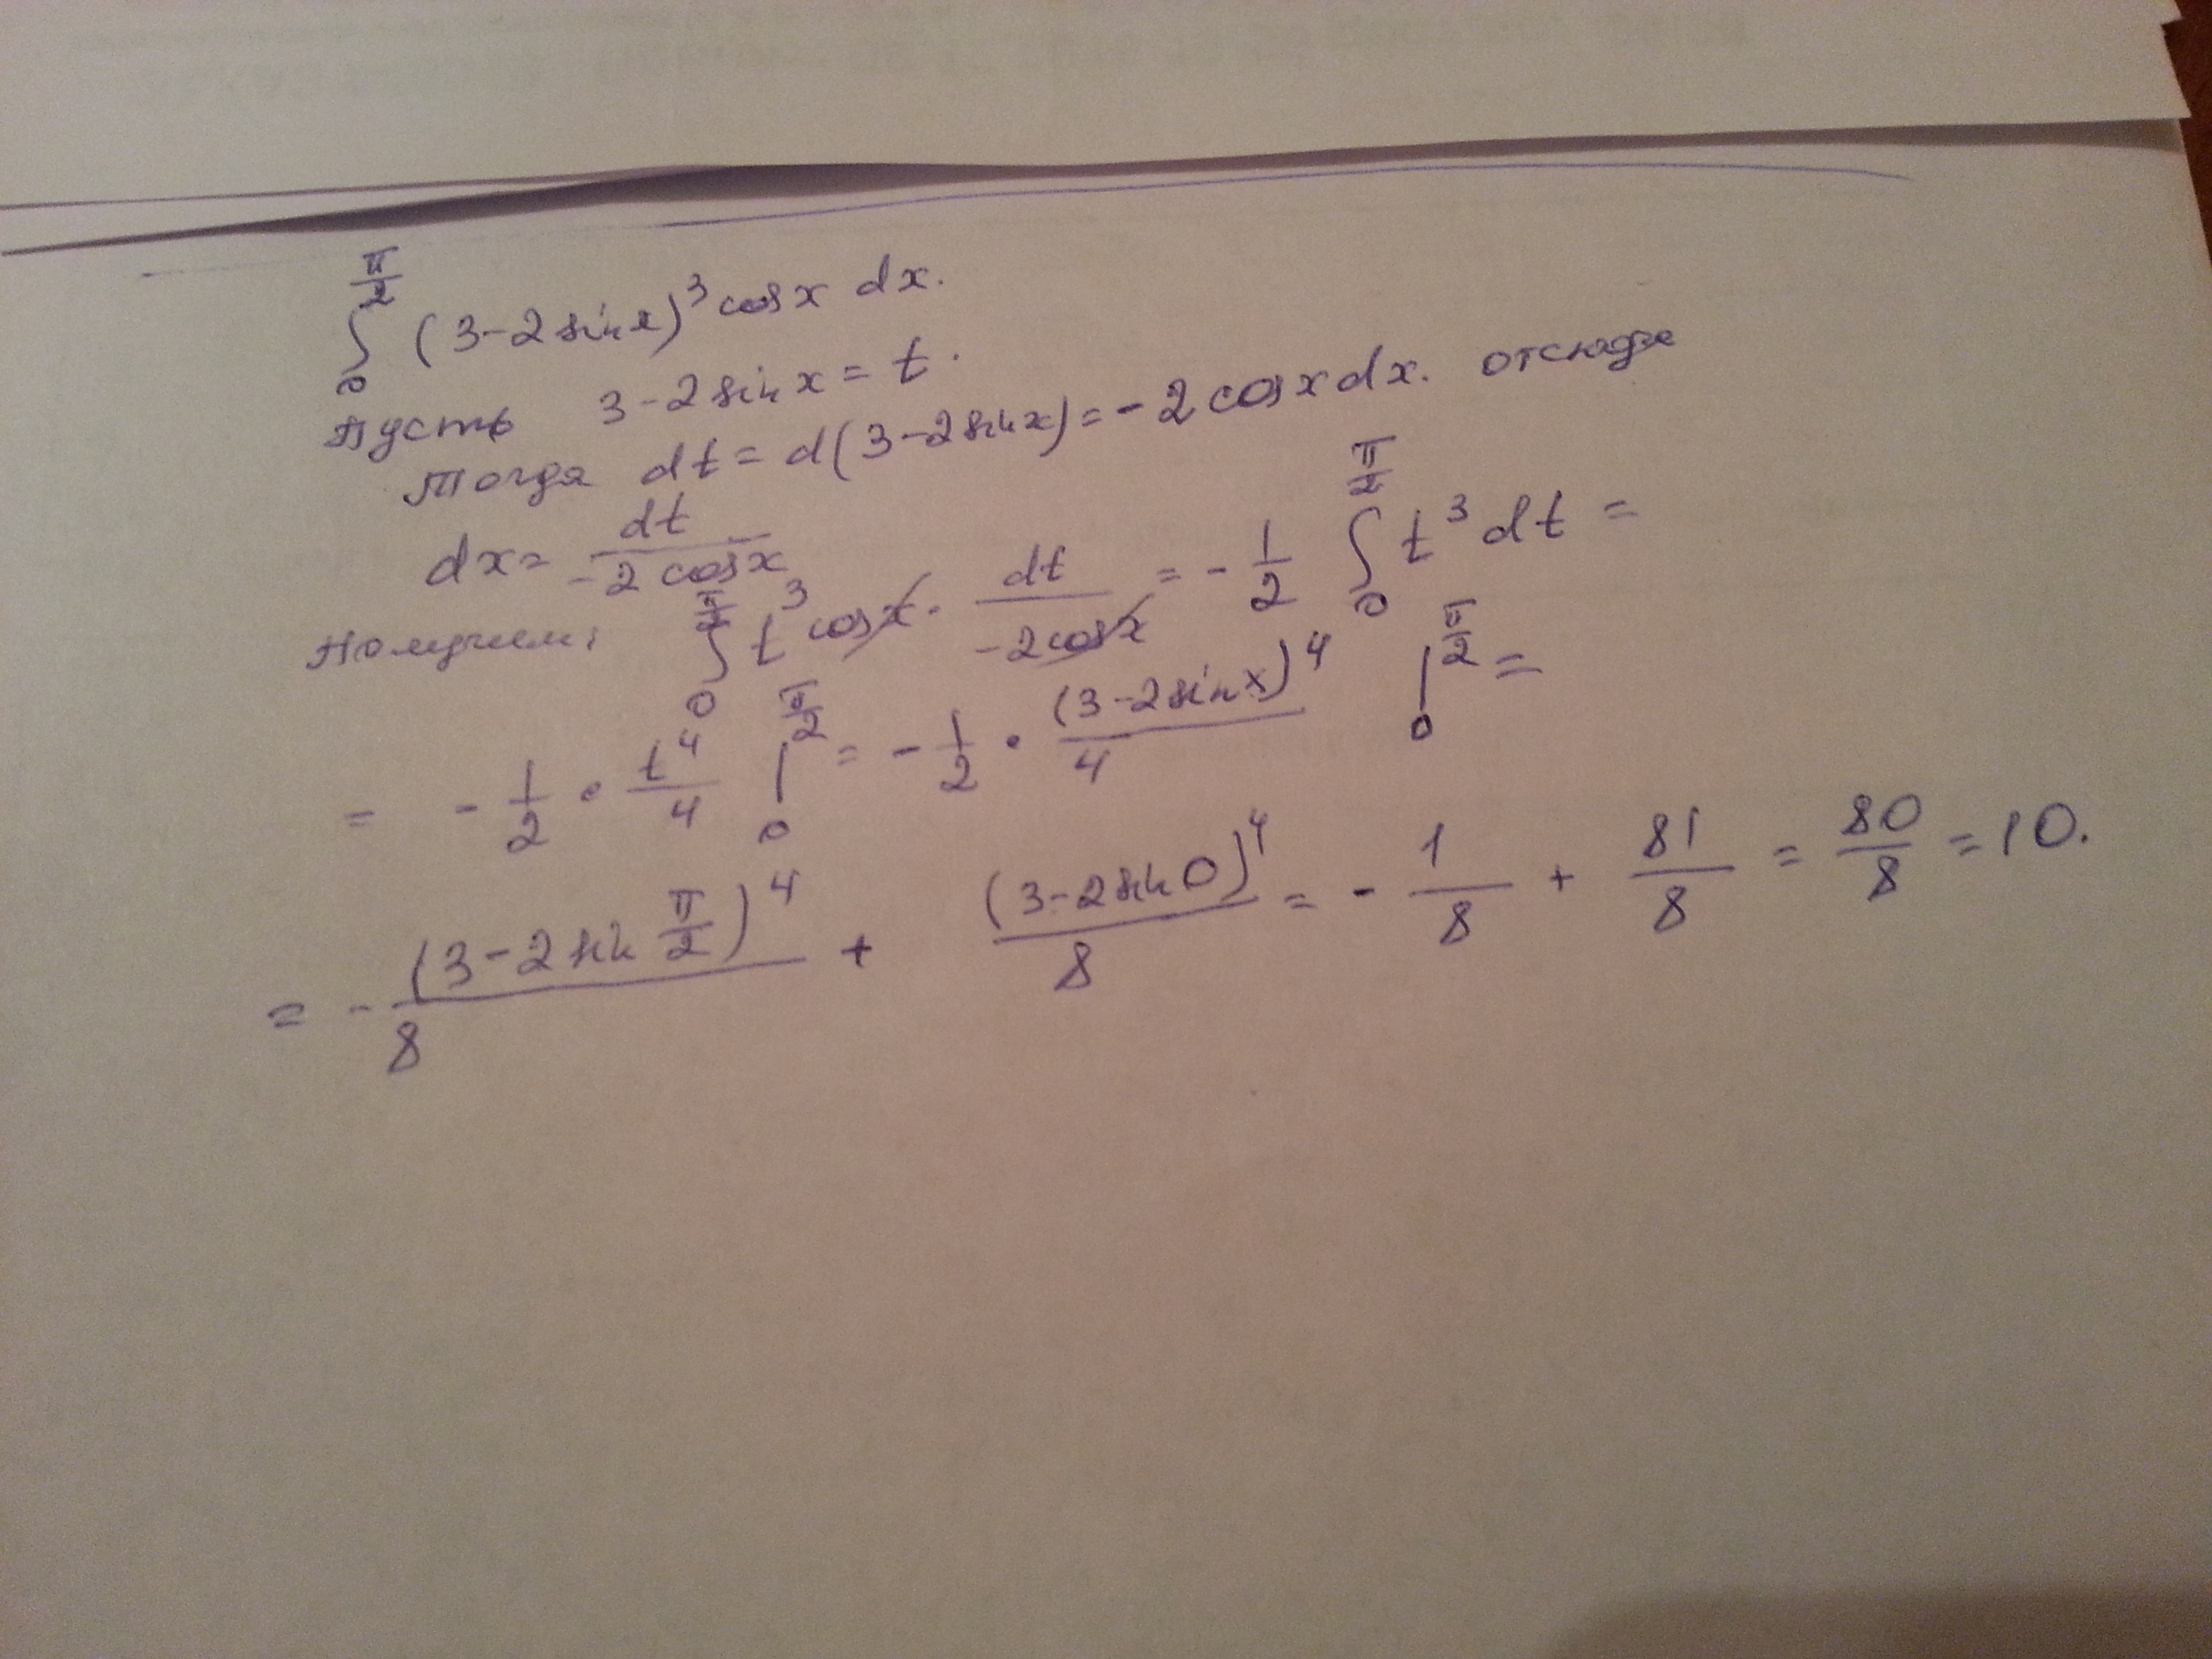 ∫₀^{π/2} (3-2sinx)³ cosx dx.
Пусть 3-2sinx = t.
Тогда dt = d(3-2sinx) = -2cosxdx. отсюда
dx = dt/(-2cosx)
Получим: ∫₀^{π/2} t³ cosx · dt/(-2cosx) = -1/2 ∫₀^{π/2} t³dt =
= -1/2 · t⁴/4 |₀^{π/2} = -1/2 · (3-2sinx)⁴/4 |₀^{π/2} =
= -(3-2sin π/2)⁴/8 + (3-2sin0)⁴/8 = -1/8 + 81/8 = 80/8 = 10.